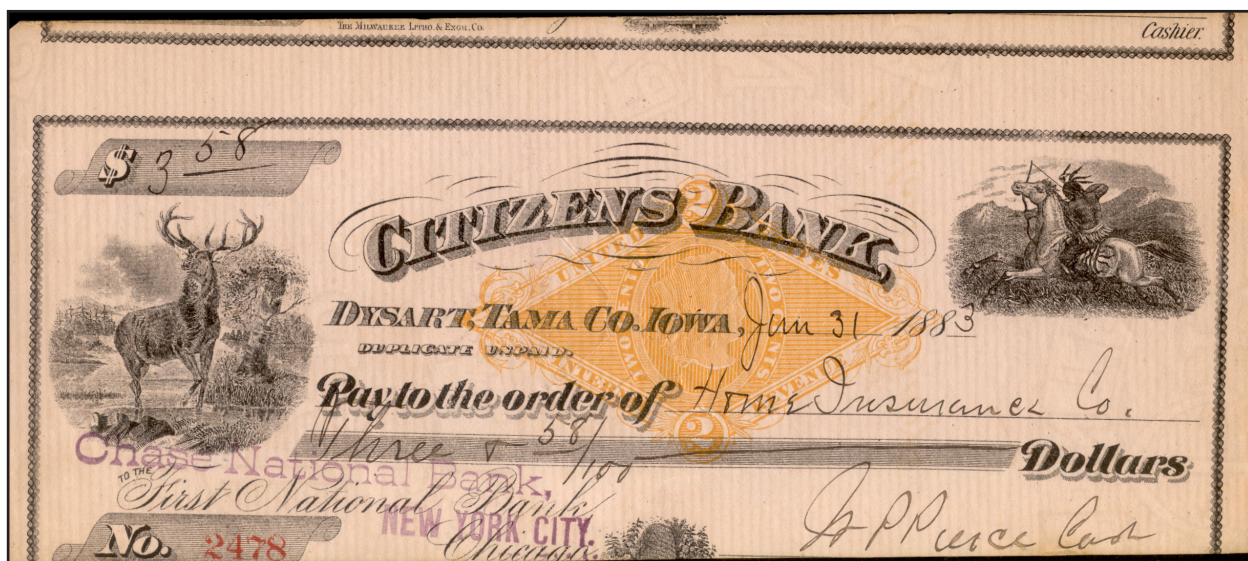 THE MILWAUKEE LITHO. & ENGR. CO.
Cashier.
$ 3 58
CITIZENS BANK,
UNITED STATES
TWO CENTS
INTER REVENUE
TWO CENTS
2
DYSART, TAMA CO. IOWA, Jan 31 1883
DUPLICATE UNPAID.
Pay to the order of Home Insurance Co.
2
Three & 58/100 Dollars
Chase National Bank,
TO THE
First National Bank
NEW YORK CITY.
Chicago.
No. 2478
Pierce Cash